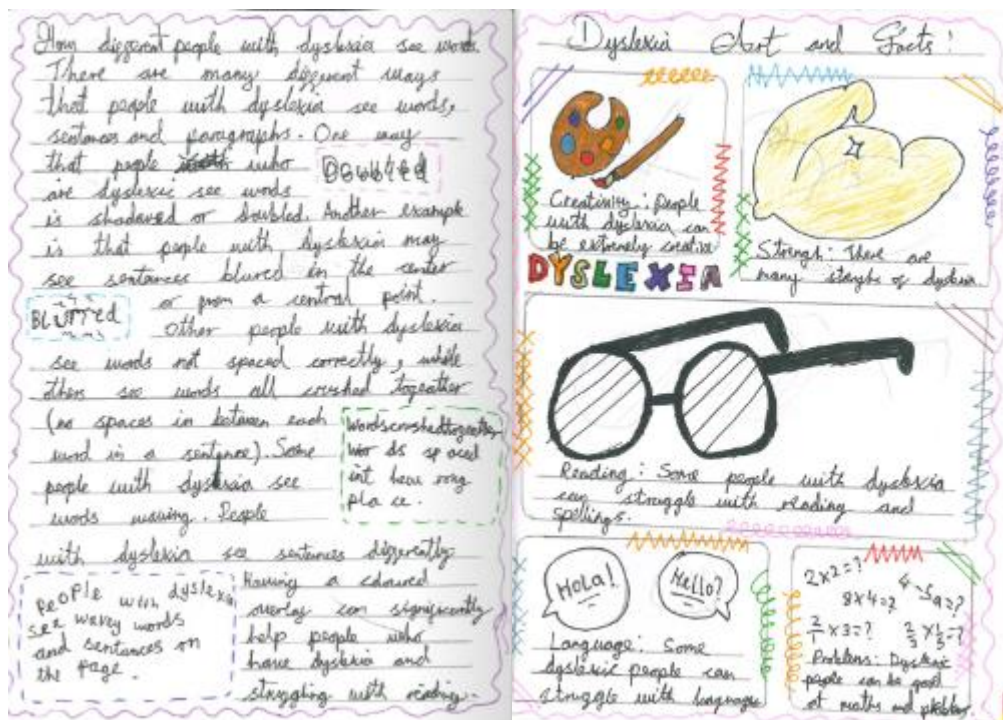 How different people with dyslexia see words.
There are many different ways
that people with dyslexia see words,
sentences and paragraphs. One way
that people who
are dyslexic see words
is shadowed or doubled. Another example
is that people with dyslexia may
see sentences blured in the center
or from a central point.
Other people with dyslexia
see words not spaced correctly, while
others see words all crushed together
(no spaces in between each
word in a sentence). Some
people with dyslexia see
words waving. People
with dyslexia see sentences differently
Having a coloured
overlay can significantly
help people who
have dyslexia and
struggling with reading.
Doubled
BLurred
wordscrushedtogether
wor ds sp aced
int hew rong
pla ce.
PeOPle with dyslexia
see wavey words
and sentences on
the page.
Dyslexia Art and Facts!
Creativity: People
with dyslexia can
be extremely creative
Strengh: There are
many strenghs of dyslexia
DYSLEXIA
Reading: Some people with dyslexia
can struggle with reading and
spellings.
HoLa!
Hello?
Language: Some
dyslexic people can
struggle with languages
2x2=?
8x4=?
2/1 x3=?
2/3 x 1/5=?
Problems: Dyslexic
people can be good
at maths and